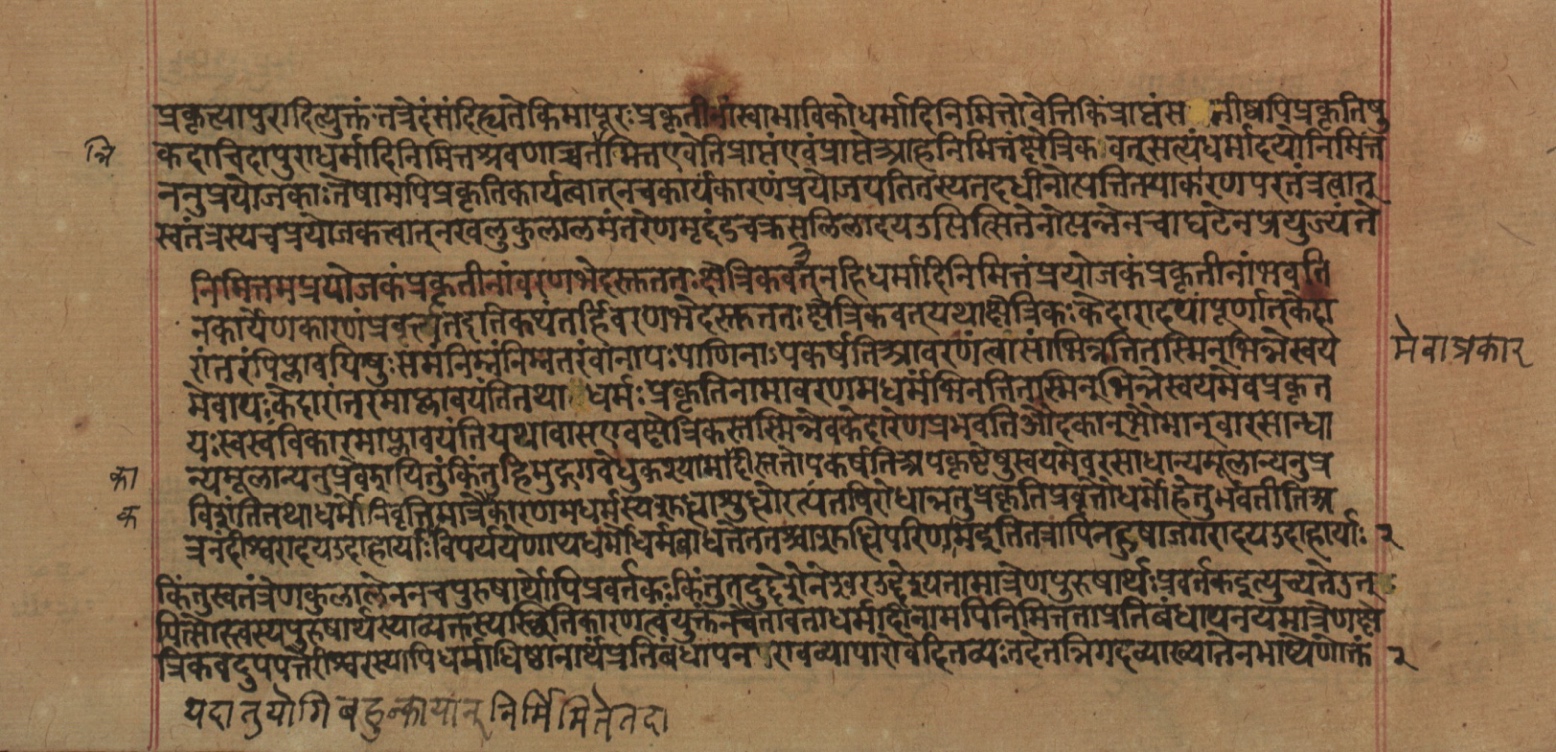 प्रकृत्यापुरादित्युक्तंतत्रेदंसंदिह्यतेकिमापूरःप्रकृतीनांस्वाभाविकोधर्मादिनिमित्तोवेत्तिकिंप्राप्तंस नीष्वपिप्रकृतिषु
न्नि
कदाचिदापुराधर्मादिनिमित्तश्रवणाच्चतन्मित्तएवेतिप्राप्तंएवंप्राप्तेआहनिमित्तंक्षेत्रिकवत्सत्यंधर्मादयोनिमित्तं
ननुप्रयोजकाःतेषामपिप्रकृतिकार्यत्वात्नचकार्यंकारणंप्रयोजयतितस्यतदधीनोत्पत्तितयाकरणपरतंत्रत्वात्
स्वतंत्रस्यचप्रयोजकत्वात्नखलुकुलालमंतरेणमृद्दंडचक्रसलिलादयउत्पित्सितेनोत्पन्नेनचाघटेनप्रयुज्यंते
निमित्तमप्रयोजकंप्रकृतीनांवरणभेदस्तततःक्षेत्रिकवत्नहिधर्मादिनिमित्तंप्रयोजकंप्रकृतीनांभवति
नकार्येणकारणंप्रवर्त्त्यतइतिकथंतर्हिवरणभेदस्तततःक्षेत्रिकवत्यथाक्षेत्रिकःकेदारादयांपूर्णात्केदा
रांतरंपिप्लावयिषुःसमंनिम्नंनिम्नतरंवानापःपाणिनाऽपकर्षतिआवरणंत्वासांभिनत्तितस्मिन्भिन्नेस्वय
मेवाप्रकार
मेवापःकेदारांतरमाप्लावयंतितथा धर्मःप्रकृतिनामावरणमधर्मंभिनत्तितस्मिन्भिन्नेस्वयमेवप्रकृत
यःस्वंस्वंविकारमाप्लावयंतियथावासएवक्षेत्रिकस्तस्मिन्नेवकेदारेणप्रभवतिऔदकान्भौमान्वारसान्धा
का
न्यमूलान्यनुप्रवेशयितुंकिंतुहिमुद्गगवेधुकश्यामादींस्ततोपकर्षतिअपकृष्टेषुस्वयमेवरसाधान्यमूलान्यनुप्र
क
विशंतितथाधर्मोनिवृत्तिमात्रेकारणमधर्मस्यशुद्ध्याशुद्ध्योरत्यंतविरोधान्नतुप्रकृतिप्रवृत्तोधर्मोहेतुर्भवतीतिअ
त्रनंदीश्वरादयउदाहार्याःविपर्ययेणाप्यधर्मोधर्मंबाधतेततश्चाशुद्धिपरिणामइतितत्रापिनहुषाजगरादयउदाहार्याः २
किंतुस्वतंत्रेणकुलालेननचपुरुषार्थोपिप्रवर्तकःकिंतुतदुद्देशेनेश्वरउद्देश्यतामात्रेणपुरुषार्थःप्रवर्तकइत्युच्यतेउत्
पित्सोस्त्वस्यपुरुषार्थस्याव्यक्तस्यस्थितिकारणत्वंयुक्तंनचैतावताधर्मादीनामपिनिमित्तताप्रतिबंधापनयमात्रेणक्षे
त्रिकवदुपपत्तेरीश्वरस्यापिधर्माधिष्ठानार्थंप्रतिबंधापनयएवव्यापारोवेदितव्यःतदेतन्निगदव्याख्यातेनभाष्येणोक्तं २
यदातुयोगिबहुन्कायान्निर्मिमितेतदा